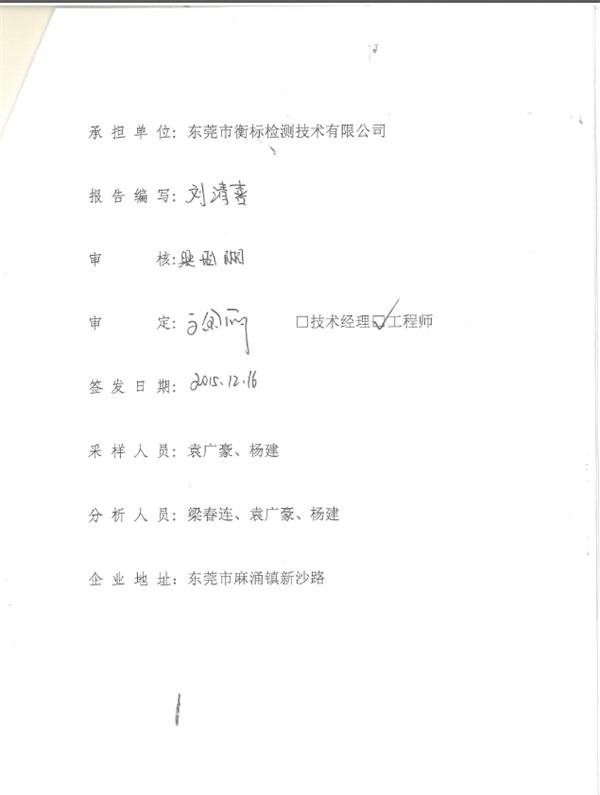 承担单位：东莞市衡标检测技术有限公司
报告编写：刘清喜
审核：
审定： □技术经理☑工程师
签发日期：2015.12.16
采样人员：袁广豪、杨建
分析人员：梁春连、袁广豪、杨建
企业地址：东莞市麻涌镇新沙路